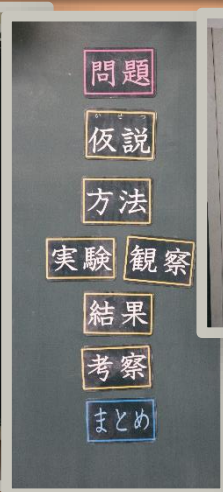 問題
かせつ
仮説
方法
実験 観察
結果
考察
まとめ